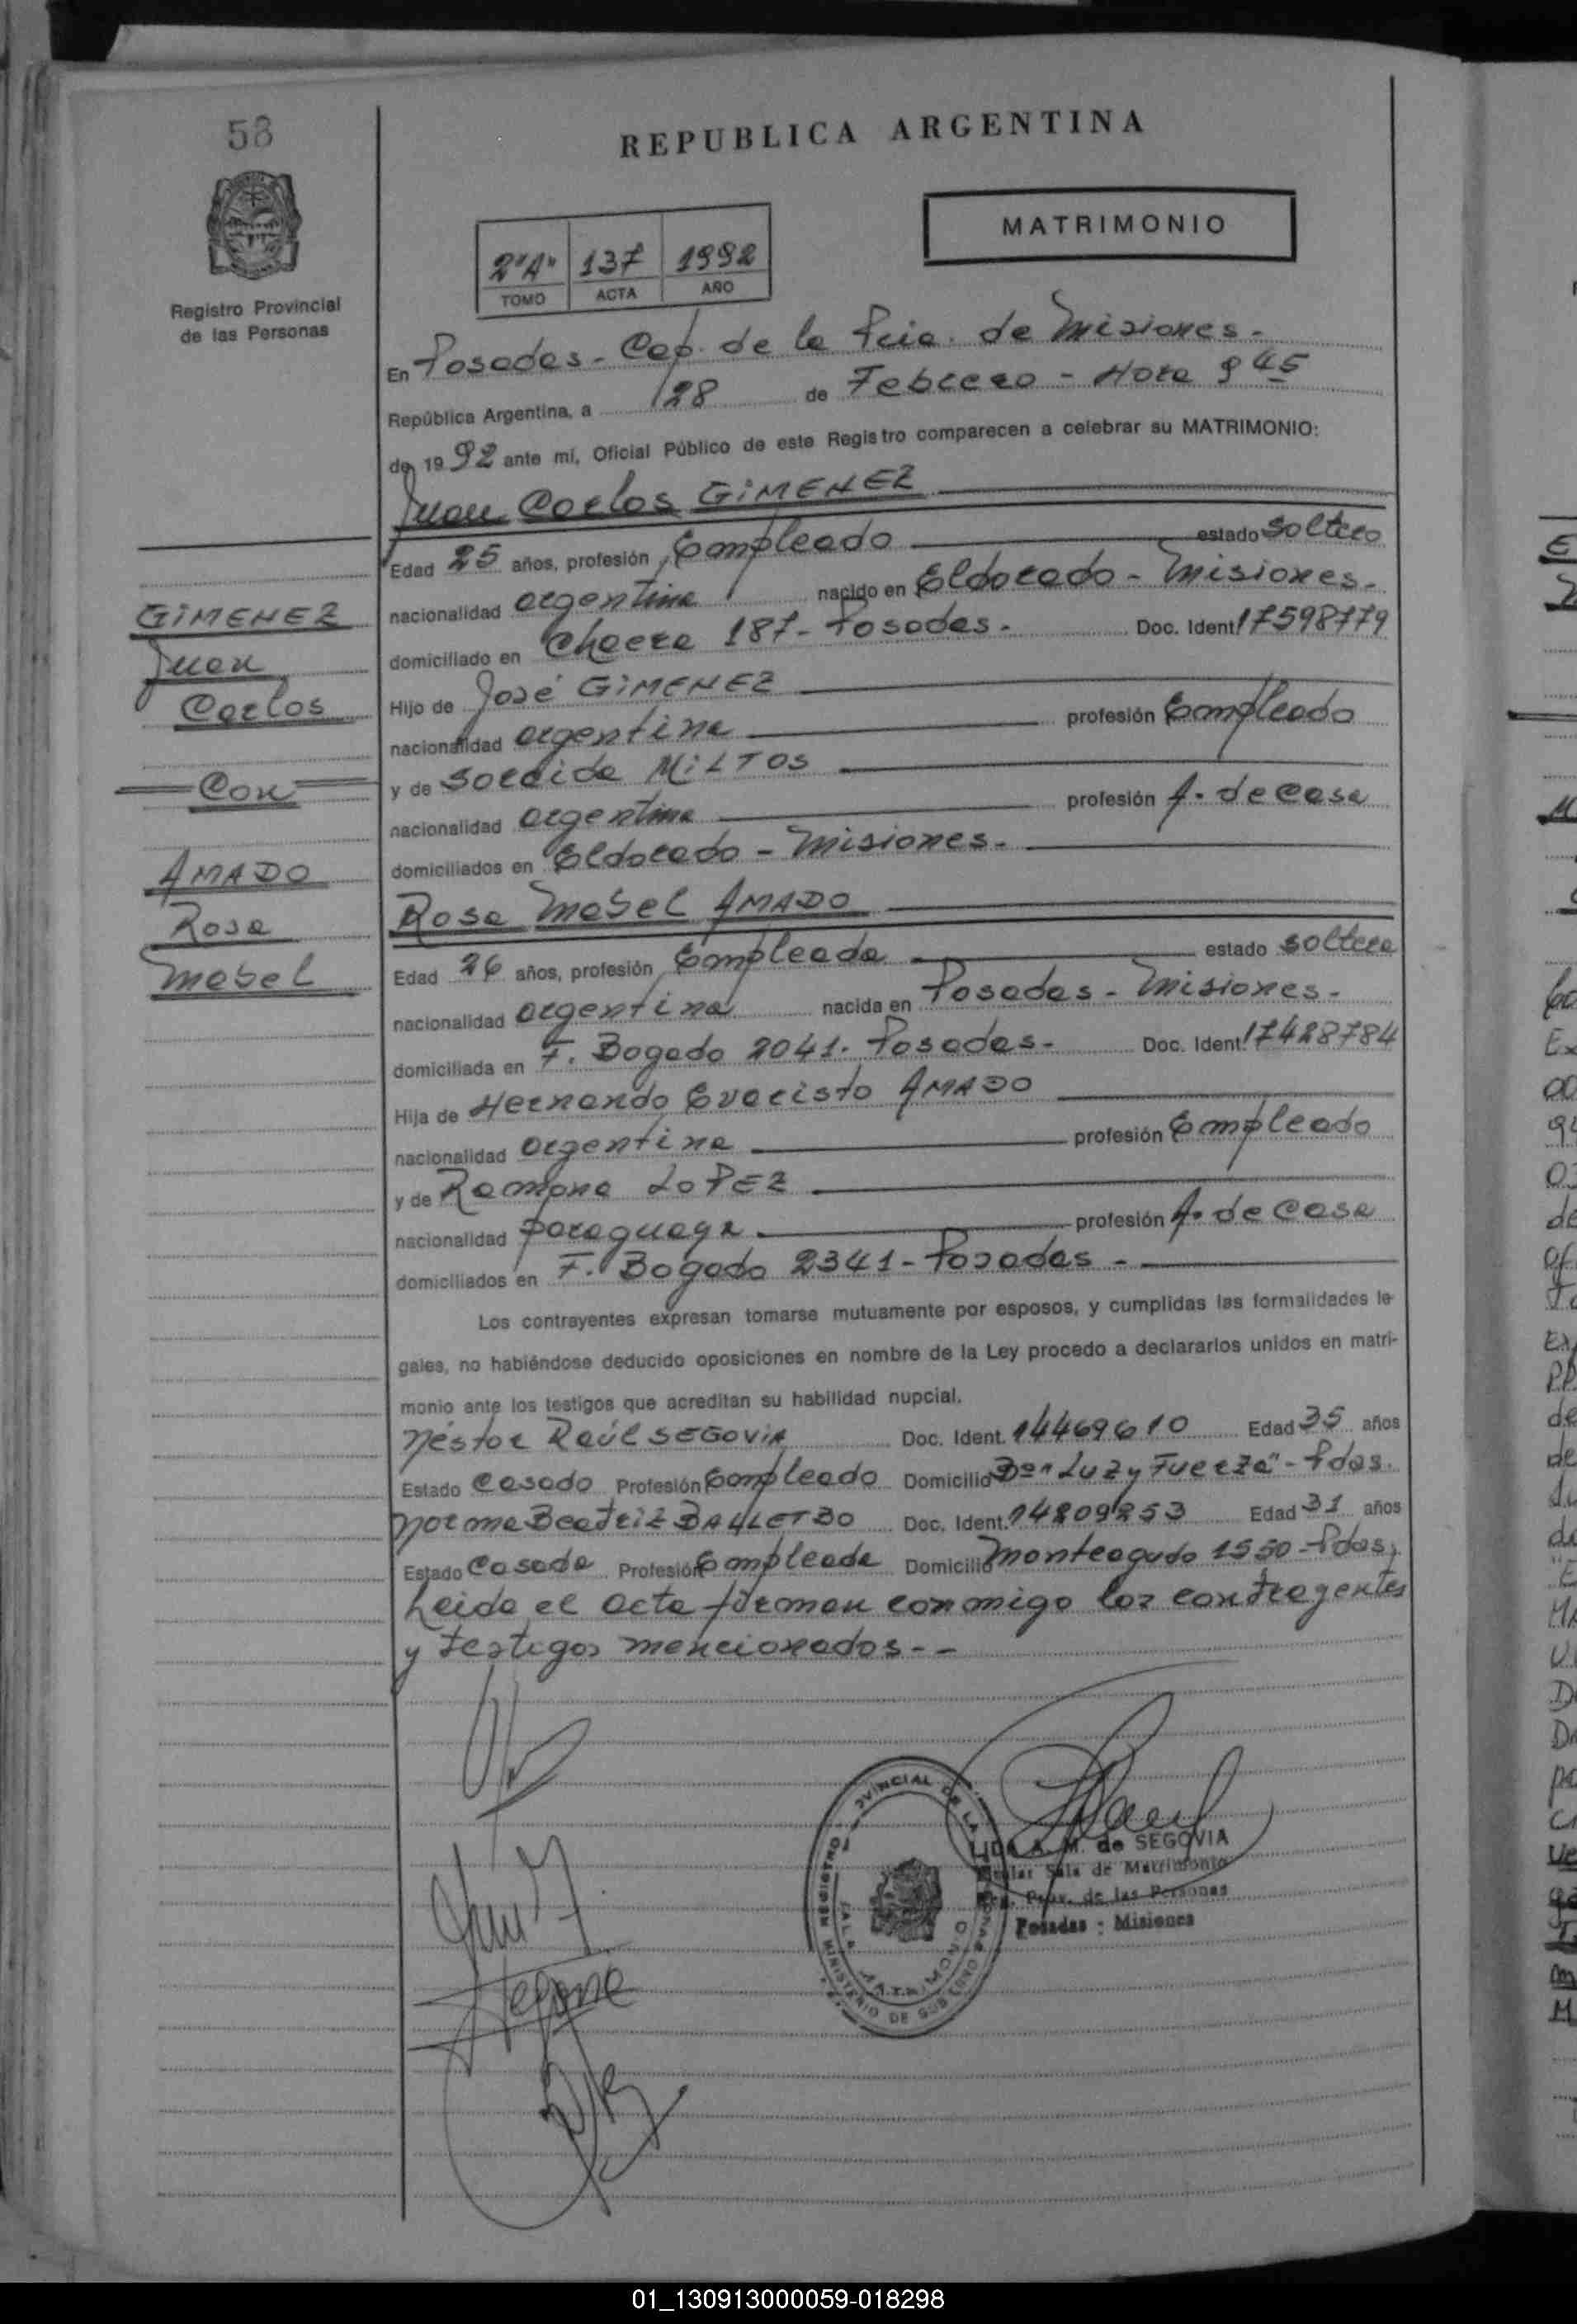 58
REPUBLICA ARGENTINA
MATRIMONIO
2"A" 137 1992
TOMO ACTA AÑO
Registro Provincial
de las Personas
En Posadas - Cap. de la Pcia. de Misiones -
República Argentina, a 28 de Febrero - Hora 9 45
de 1992 ante mí, Oficial Público de este Registro comparecen a celebrar su MATRIMONIO:
Juan Carlos GIMENEZ
Edad 25 años, profesión Empleado estado soltero
nacionalidad argentina nacido en Eldorado - Misiones -
domiciliado en Chacra 187 - Posadas - Doc. Ident. 17598779
Hijo de José GIMENEZ
nacionalidad argentina profesión Empleado
y de Soraida MILTOS
nacionalidad argentina profesión A. de Casa
domiciliados en Eldorado - Misiones -
GIMENEZ
Juan
Carlos
Con
AMADO
Rosa
Mabel
Rosa Mabel AMADO
Edad 26 años, profesión Empleada estado soltera
nacionalidad argentina nacida en Posadas - Misiones -
domiciliada en F. Bogado 2041 - Posadas - Doc. Ident. 17428784
Hija de Hernando Evaristo AMADO
nacionalidad argentina profesión Empleado
y de Ramona LOPEZ
nacionalidad paraguaya profesión A. de Casa
domiciliados en F. Bogado 2341 - Posadas -
Los contrayentes expresan tomarse mutuamente por esposos, y cumplidas las formalidades le-
gales, no habiéndose deducido oposiciones en nombre de la Ley procedo a declararlos unidos en matri-
monio ante los testigos que acreditan su habilidad nupcial.
Néstor Raúl SEGOVIA Doc. Ident. 14469610 Edad 35 años
Estado Casado Profesión Empleado Domicilio Bº "Luz y Fuerza" - Pdas.
Norma Beatriz Doc. Ident. 14209253 Edad 31 años
Estado Casada Profesión Empleada Domicilio Monteagudo 1550 - Pdas,
Leida el acta firman conmigo los contrayentes
y testigos mencionados - -
LIDA A. M. de SEGOVIA
Titular Sala de Matrimonio
Reg. Prov. de las Personas
Posadas : Misiones
REGISTRO PROVINCIAL DE LAS PERSONAS
SALA MATRIMONIO
MINISTERIO DE GOBIERNO
01_130913000059-018298